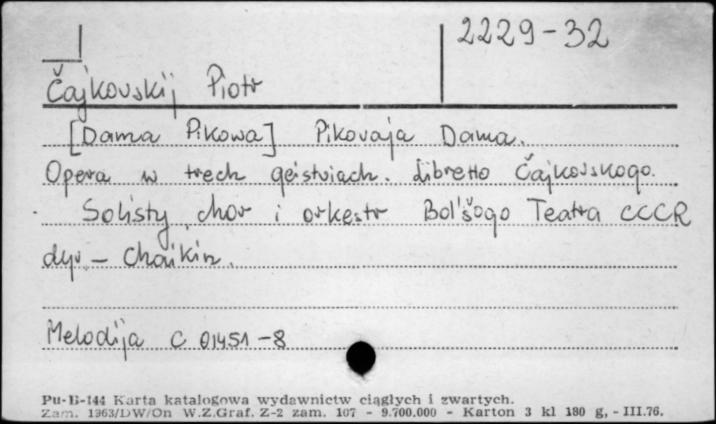 2229-32
Čajkovskij Piotr
[Dama Pikowa] Pikovaja Dama.
Opera w trech dejstviach. Libretto Čajkovskogo.
Solisty, chor i orkestr Bol'šogo Teatra CCCR
dyr - Chajkin.
Melodija C 01451-8
Pu-B-144 Karta katalogowa wydawnictw ciągłych i zwartych.
Zam. 1363/DW/On W.Z.Graf. Z-2 zam. 107 - 9.700.000 - Karton 3 kl 180 g, - III.76.